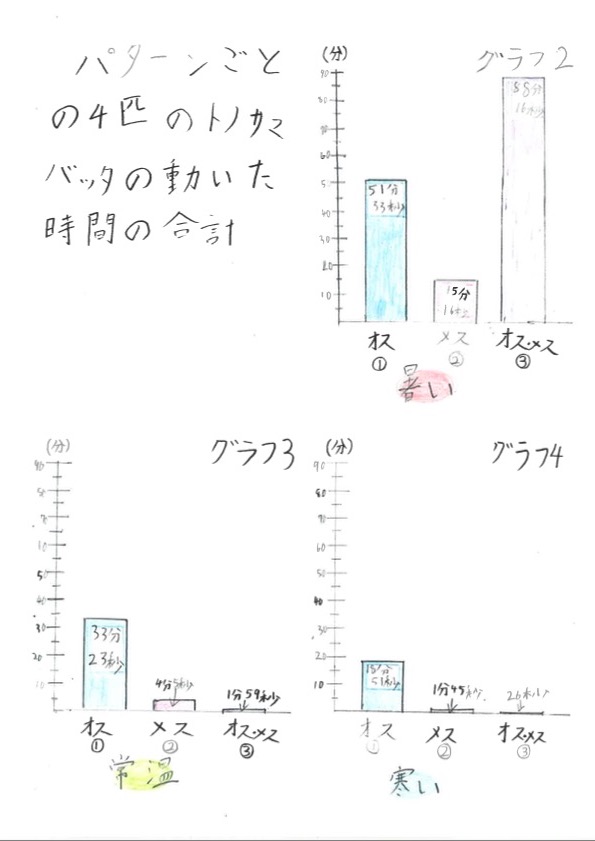 パターンごと
の4匹のトノサマ
バッタの動いた
時間の合計
グラフ2
(分)
90
80
70
60
50
40
30
20
10
51分
33秒
15分
16秒
88分
16秒
オス メス オス・メス
① ② ③
暑い
グラフ3
(分)
90
80
70
60
50
40
30
20
10
33分
23秒
4分5秒
1分59秒
オス メス オス・メス
① ② ③
常温
グラフ4
(分)
90
80
70
60
50
40
30
20
10
51秒
1分45秒
26秒
オス メス オス・メス
① ② ③
寒い